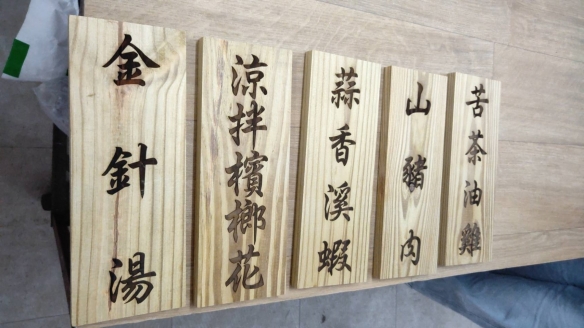 苦茶油雞
山豬肉
蒜香溪蝦
涼拌檳榔花
金針湯